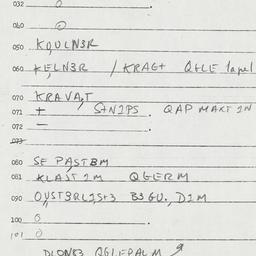 032 0 .
040 0
050 KQULN3R
060 KELN3R / KRAG+ QFLE lapel
070 KRAVAT
071 + S+N2PS. QAP MAKT IN
072 – .
073
080 SE PASTBM
081 KLAST IM QGERM
090 OYST3RL2S+3 B3GU. D2M
100 0 .
101 0
DLONS3 QGLEPALM